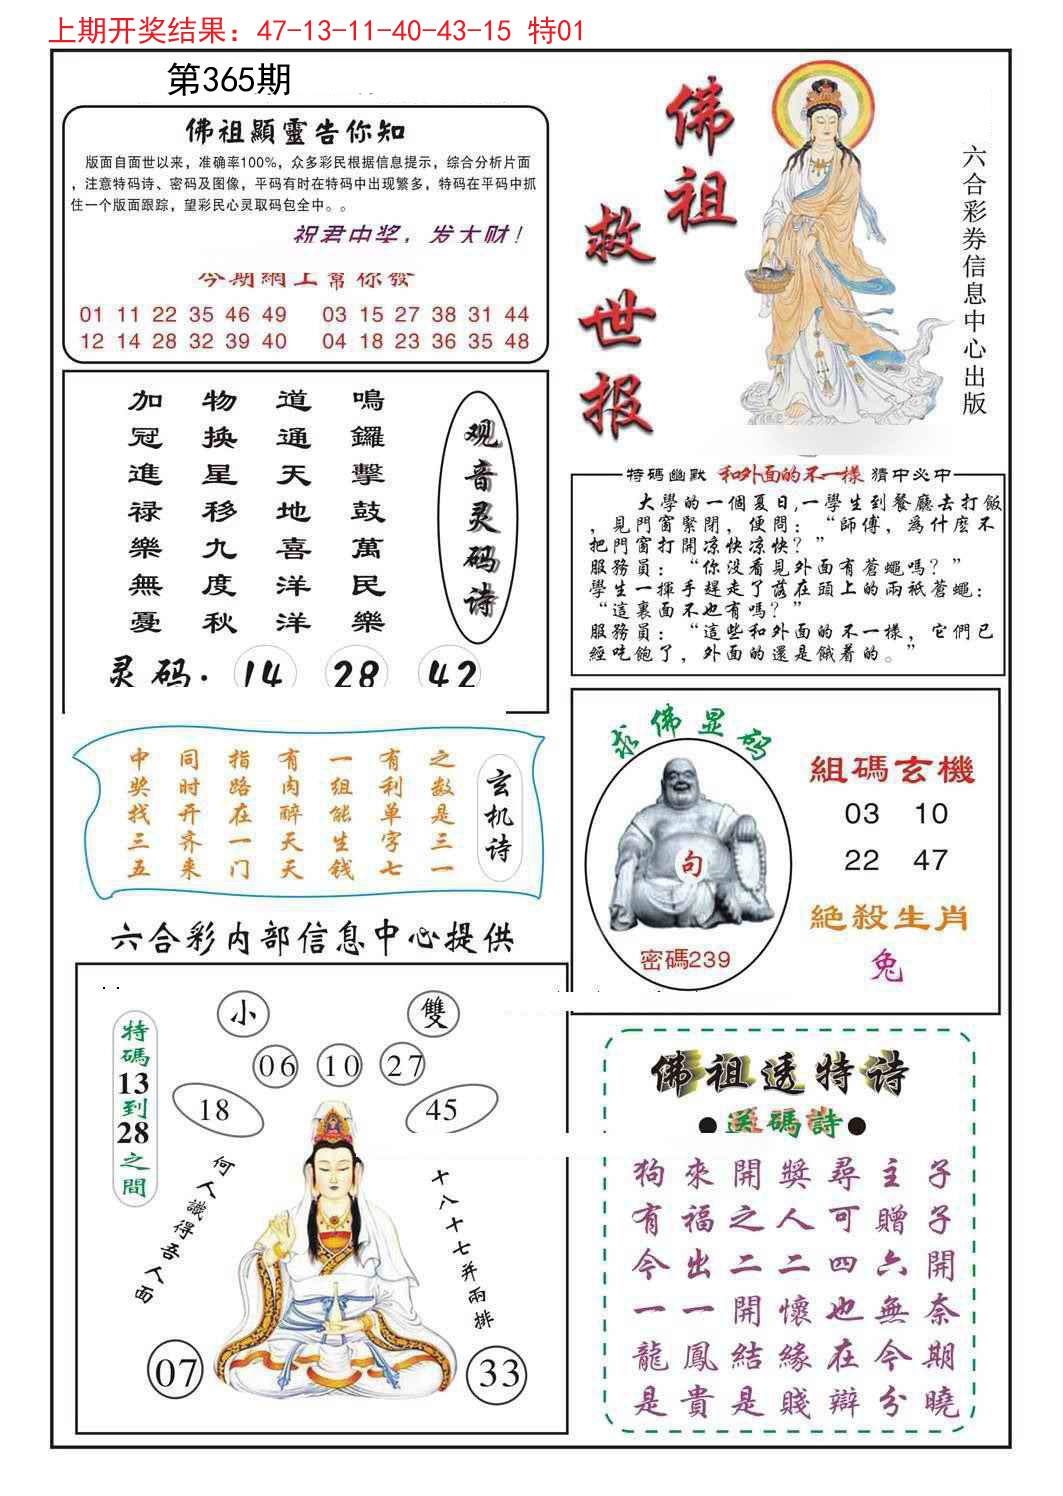 上期开奖结果：47-13-11-40-43-15 特01
第365期
佛祖顯靈告你知
版面自面世以来，准确率100%，众多彩民根据信息提示，综合分析片面
，注意特码诗、密码及图像，平码有时在特码中出现繁多，特码在平码中抓
住一个版面跟踪，望彩民心灵取码包全中。。
祝君中奖，发大财！
今期網上幫你發
01 11 22 35 46 49 03 15 27 38 31 44
12 14 28 32 39 40 04 18 23 36 35 48
佛祖
救世报
六合彩券信息中心出版
观音灵码诗
鳴鑼擊鼓萬民樂
道通天地喜洋洋
物换星移九度秋
加冠進禄樂無憂
灵码. 14 28 42
特碼幽默 和外面的不一樣 猜中必中
大學的一個夏日,一學生到餐廳去打飯
，見門窗緊閉，便問：“師傅，為什麽不
把門窗打開凉快凉快？”
服務員：“你没看見外面有蒼蠅嗎？”
學生一揮手趕走了落在頭上的兩祇蒼蠅：
“這裏面不也有嗎？”
服務員：“這些和外面的不一樣，它們已
經吃飽了，外面的還是餓着的。”
玄机诗
之数是三一
有利单字七
一组能生钱
有肉醉天天
指路在一门
同时开齐来
中奖找三五
求佛显码
句
密碼239
組碼玄機
03 10
22 47
絕殺生肖
兔
六合彩内部信息中心提供
特碼13到28之間
小 雙
06 10 27
18 45
何人識得吾人面
十八十七并兩排
07 33
佛祖透特诗
●送碼詩●
狗來開獎尋主子
有福之人可贈子
今出二二四六開
一一開懷也無奈
龍鳳結緣在今期
是貴是賤辯分曉